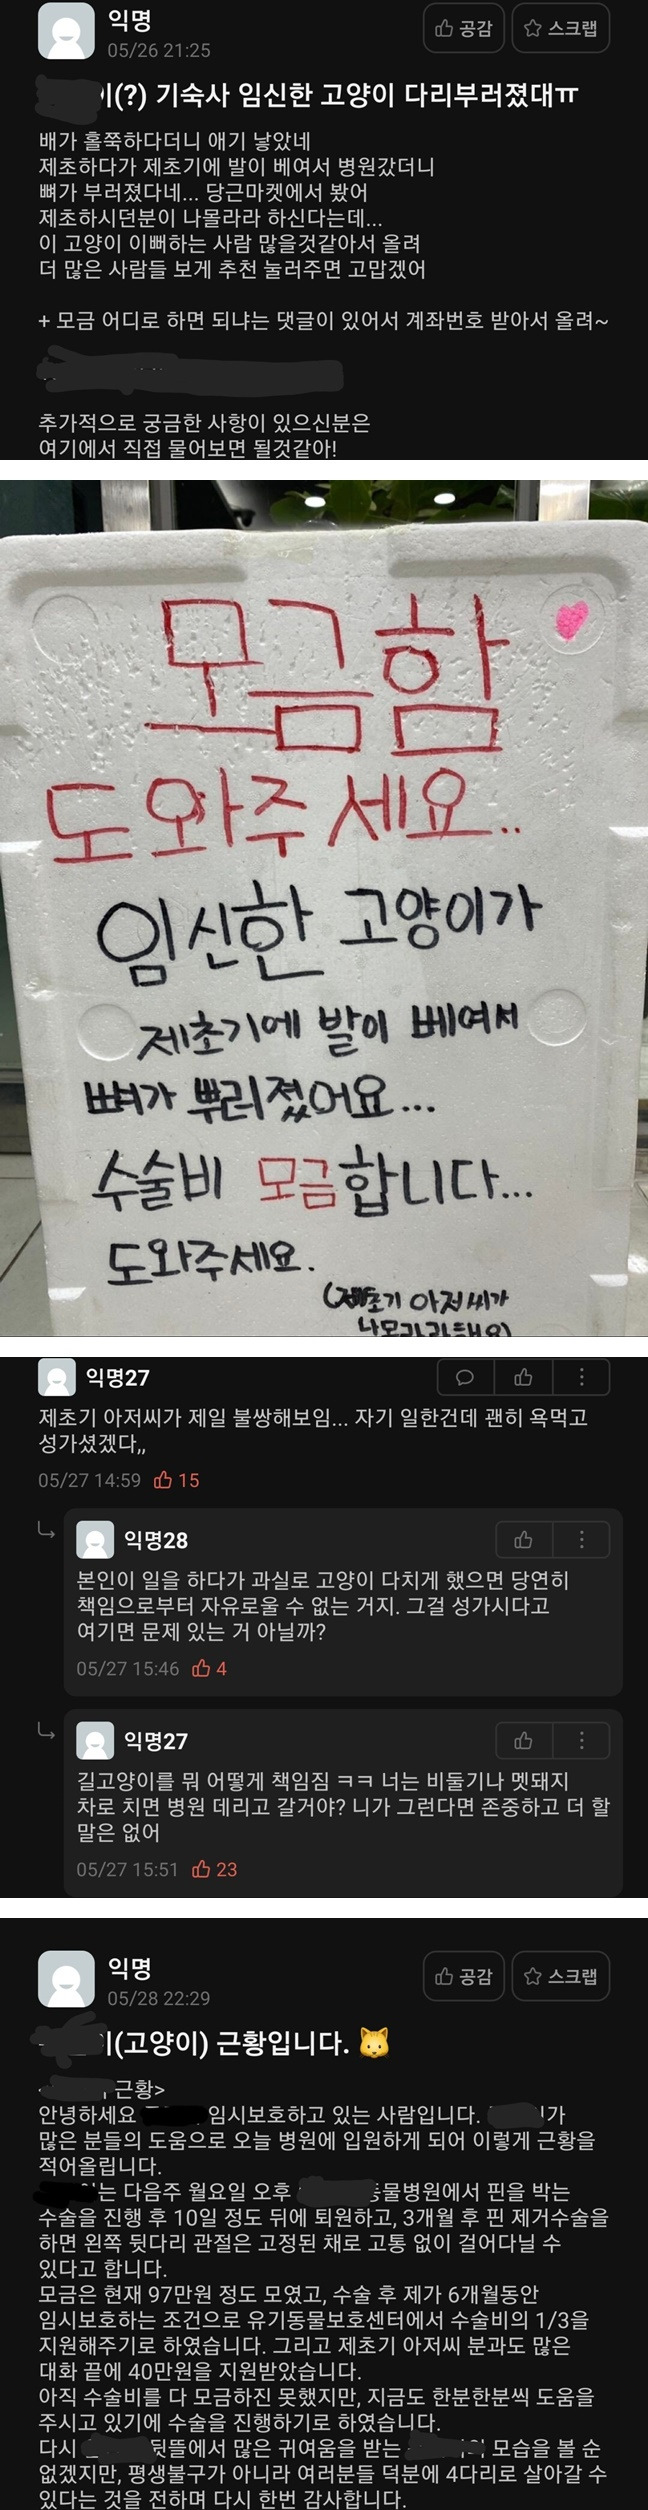 익명
05/26 21:25
공감
스크랩
이(?) 기숙사 임신한 고양이 다리부러졌대ㅠ
배가 홀쭉하다더니 애기 낳았네
제초하다가 제초기에 발이 베여서 병원갔더니
뼈가 부러졌다네... 당근마켓에서 봤어
제초하시던분이 나몰라라 하신다는데...
이 고양이 이뻐하는 사람 많을것같아서 올려
더 많은 사람들 보게 추천 눌러주면 고맙겠어
+ 모금 어디로 하면 되냐는 댓글이 있어서 계좌번호 받아서 올려~
추가적으로 궁금한 사항이 있으신분은
여기에서 직접 물어보면 될것같아!
모금함
도와주세요..
임신한 고양이가
제초기에 발이 베여서
뼈가 뿌러졌어요...
수술비 모금합니다...
도와주세요.
(제초기 아저씨가
나모라라해요)
익명27
제초기 아저씨가 제일 불쌍해보임... 자기 일한건데 괜히 욕먹고
성가셨겠다,,
05/27 14:59 15
익명28
본인이 일을 하다가 과실로 고양이 다치게 했으면 당연히
책임으로부터 자유로울 수 없는 거지. 그걸 성가시다고
여기면 문제 있는 거 아닐까?
05/27 15:46 4
익명27
길고양이를 뭐 어떻게 책임짐 ㅋㅋ 너는 비둘기나 멧돼지
차로 치면 병원 데리고 갈거야? 니가 그런다면 존중하고 더 할
말은 없어
05/27 15:51 23
익명
05/28 22:29
공감
스크랩
(고양이) 근황입니다. 🐱
근황>
안녕하세요 임시보호하고 있는 사람입니다. 가
많은 분들의 도움으로 오늘 병원에 입원하게 되어 이렇게 근황을
적어올립니다.
는 다음주 월요일 오후 동물병원에서 핀을 박는
수술을 진행 후 10일 정도 뒤에 퇴원하고, 3개월 후 핀 제거수술을
하면 왼쪽 뒷다리 관절은 고정된 채로 고통 없이 걸어다닐 수
있다고 합니다.
모금은 현재 97만원 정도 모였고, 수술 후 제가 6개월동안
임시보호하는 조건으로 유기동물보호센터에서 수술비의 1/3을
지원해주기로 하였습니다. 그리고 제초기 아저씨 분과도 많은
대화 끝에 40만원을 지원받았습니다.
아직 수술비를 다 모금하진 못했지만, 지금도 한분한분씩 도움을
주시고 있기에 수술을 진행하기로 하였습니다.
다시 뒷뜰에서 많은 귀여움을 받는 모습을 볼 순
없겠지만, 평생불구가 아니라 여러분들 덕분에 4다리로 살아갈 수
있다는 것을 전하며 다시 한번 감사합니다.